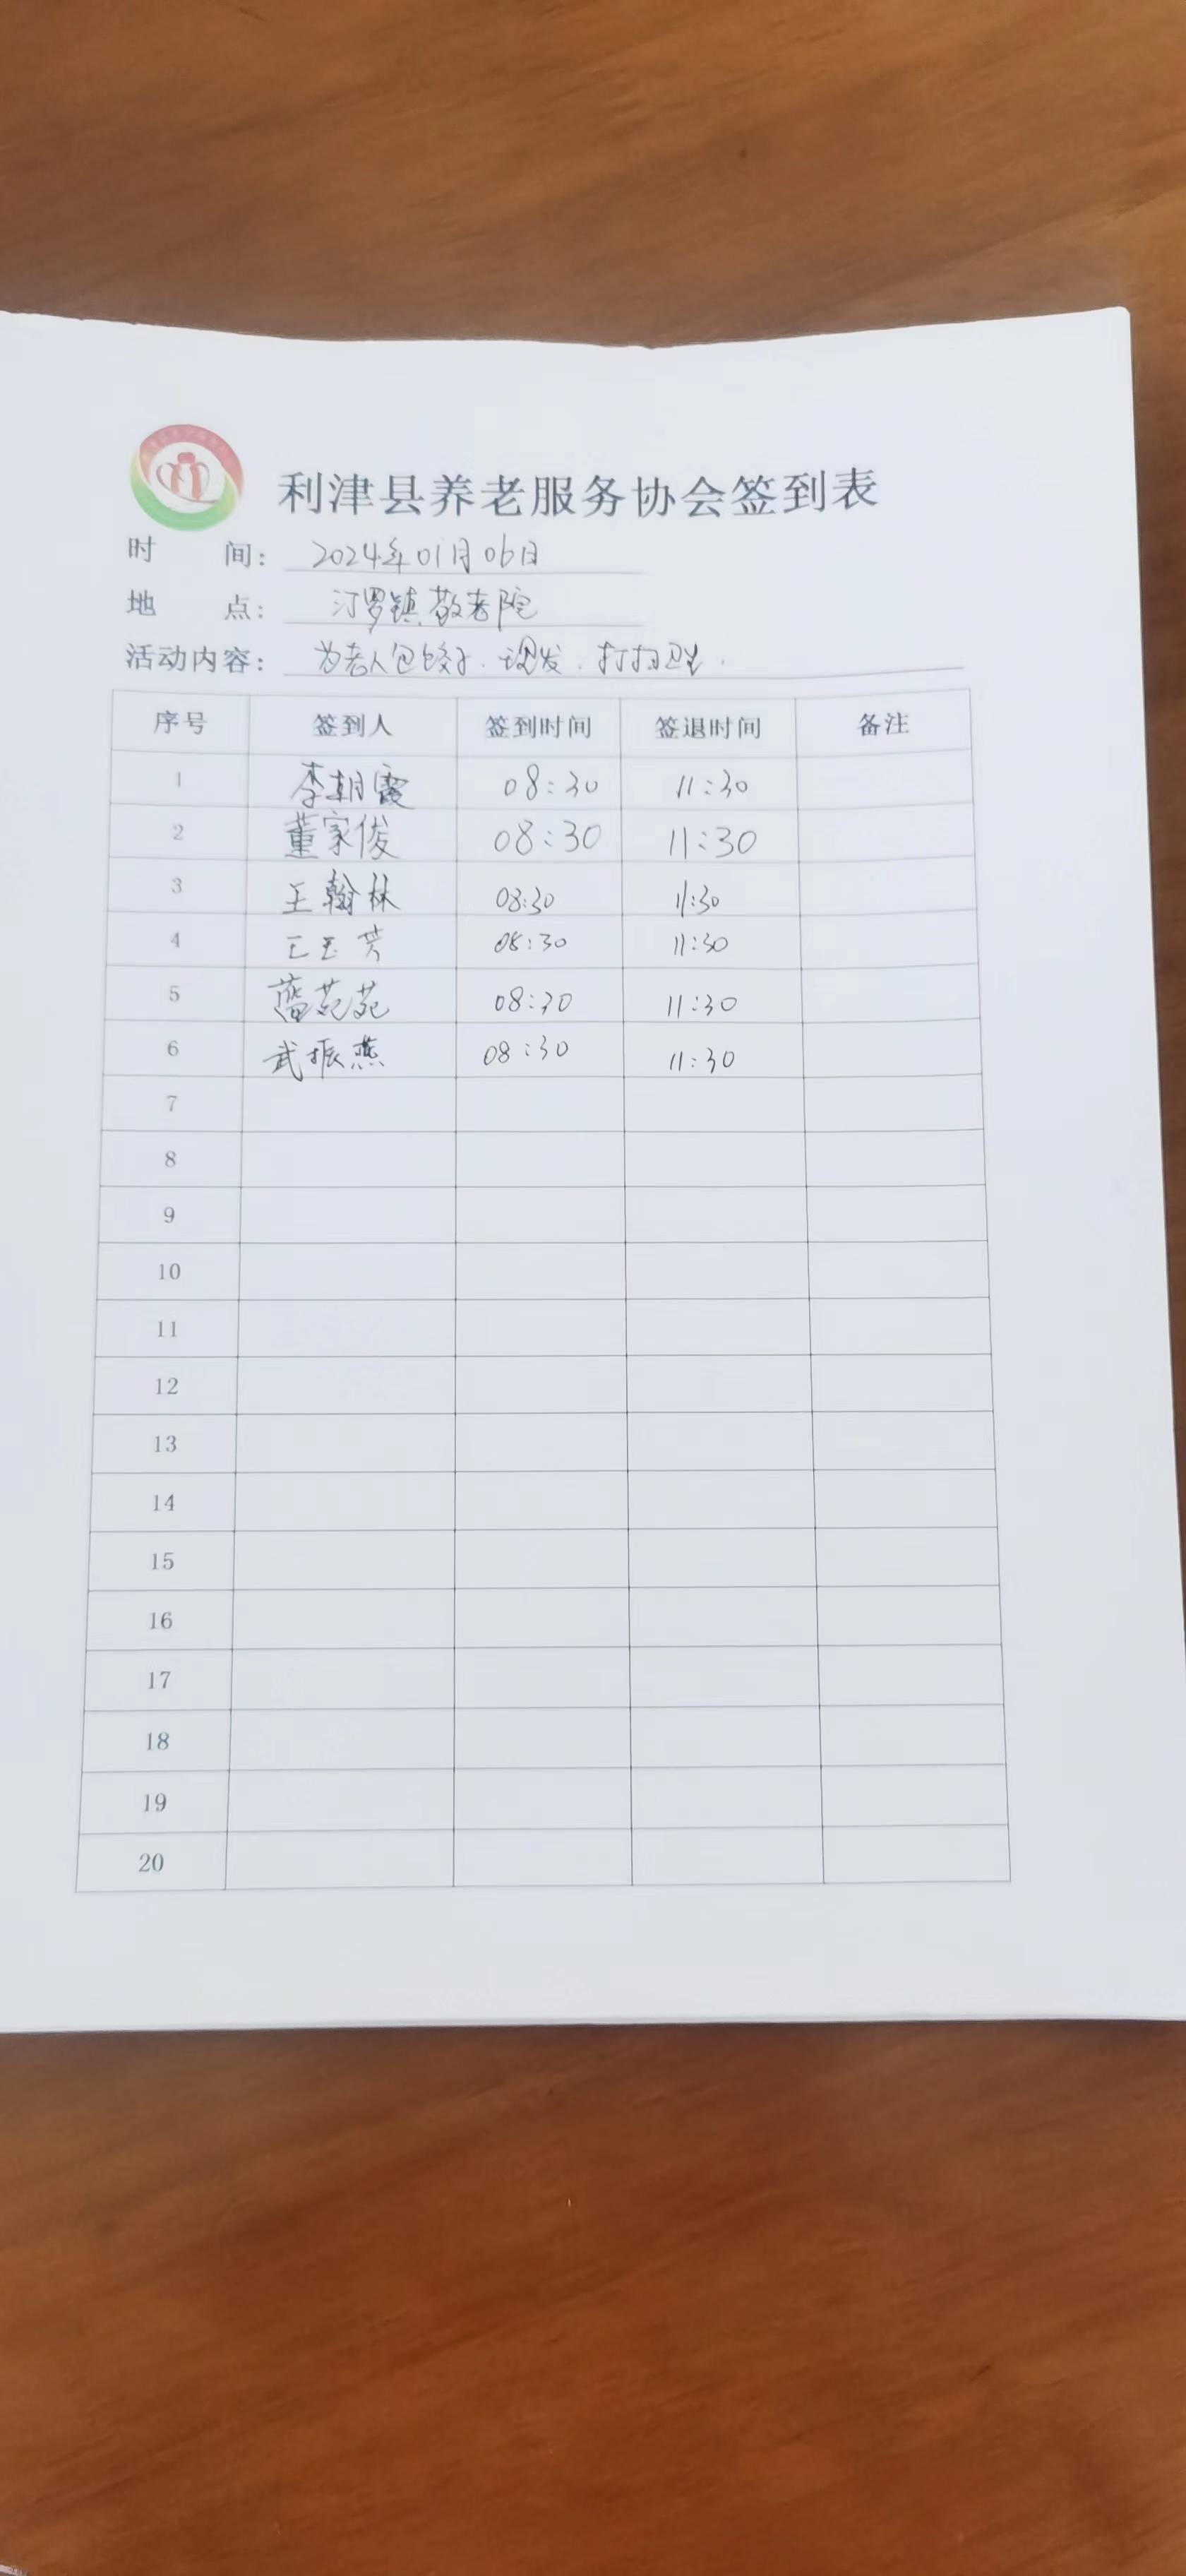 利津县养老服务协会签到表
时 间: 2024年01月06日
地 点: 汀罗镇敬老院
活动内容: 为老人包饺子、理发、打扫卫生.
序号 签到人 签到时间 签退时间 备注
1 李朝霞 08:30 11:30
2 董家俊 08:30 11:30
3 王翰林 08:30 11:30
4 王玉芳 08:30 11:30
5 苑苑 08:30 11:30
6 武振燕 08:30 11:30
7
8
9
10
11
12
13
14
15
16
17
18
19
20